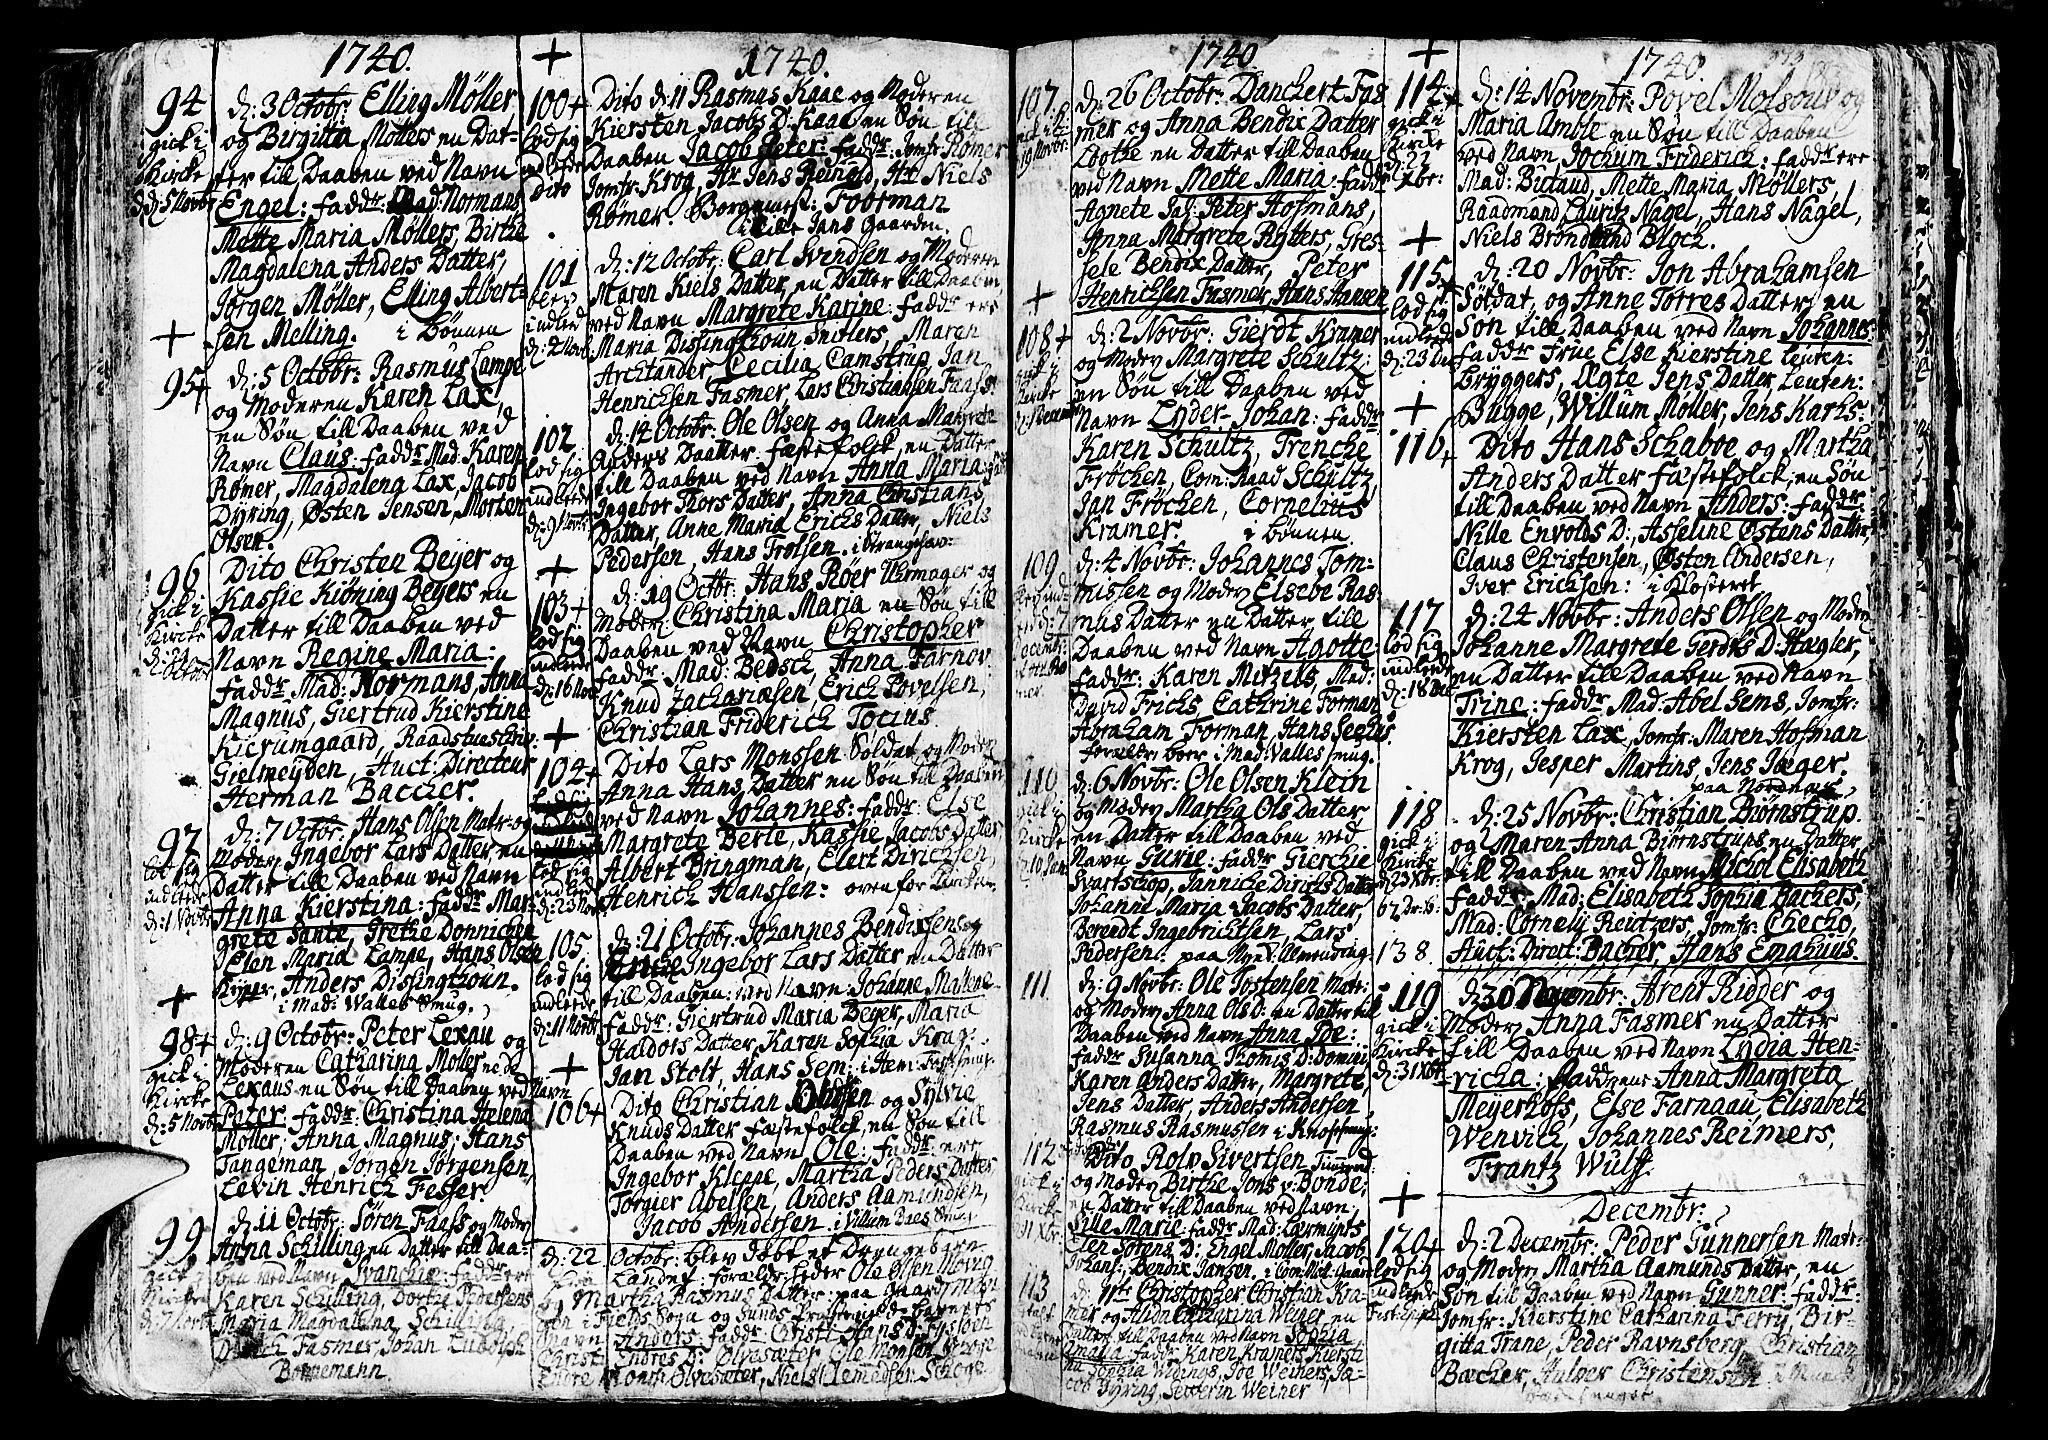 1740.
94
gick i
Kircke
d: 5 Novbr
d: 3 Octobr: Elling Møller
og Birgitta Møllers en Dat-
ter till Daaben ved Navn
Engel: faddr Mad: Normans
Mette Maria Møllers, Birthe
Magdalena Anders Datter,
Jørgen Møller, Elling Albert-
sen Melling. i Bønnen
+
95+
d: 5 Octobr: Rasmus Lampe
og Moderen Karen Lax
en Søn till Daaben ved
Navn Claus: faddr Mad: Karen
Rømer, Magdalena Lax, Jacob
Dyring, Østen Jensen, Morten
Olsen.
96
gick i
Kircke
d: 21
Octobr
Dito Christen Beyer og
Kassie Kiøning Beyers en
Datter till Daaben ved
Navn Regine Maria:
faddr Mad: Normans, Anna
Magnus, Giertrud Kierstine
Kierumgaard, Raadstuschriv:
Gielmeyden, Auct: Directeur
Herman Baccher.
97
lod sig
indlede
d: 1 Novbr
d: 7 Octobr: Hans Olsen Matr: og
Moder Ingebor Lars Datter en
Datter till Daaben ved Navn
Anna Kierstina: faddr Mar-
grete Sante, Grethe Donnicken
Elen Maria Lampe, Hans Olsen
Kyper, Anders Dissingthoun.
i Mad: Walles Smug.
+
98+
gick i
Kircke
d: 5 Novbr
d: 9 Octobr: Peter Lexau og
Moderen Catharina Møller
Lexaus en Søn till Daaben ved Navn
Peter: faddr: Christina Helena
Møller, Anna Magnus, Hans
Tangeman, Jørgen Jørgensen,
Levin Henrich Fesser.
99
gick i
Kircken
d: 11 Octobr: Søren Faass og Moder
Anna Schilling en Datter till Daa-
ben ved Navn Svanchie: faddr ere
Karen Schilling, Dorthe Pedersens
Maria Magdalena Schilling,
Fasmer, Johan Ludolph
Bornemann
+
1740.
100+
lod sig
indlede
Dito
Dito d: 11 Rasmus Kaae og Moderen
Kiersten Jacobs D: Kaae en Søn till
Daaben Jacob Peter: faddr: Jomfr Rømer
Jomfr: Krog, Hr Jens Reinold, Hr Niels
Rømer. Borgemest: Foorman
i Lille Jans Gaarden.
101
blev
indled
d: 2 Novbr
d: 12 Octobr: Carl Svindsen og Moderen
Maren Niels Datter, en Datter till Daaben
ved Navn Margrete Karine: faddr ere
Maria Dissingthoun, Snitlers, Maren
Archlander Cecilia Camstrup, Jan
Henrichsen Fasmer, Lars Christiansen Faass:
102
lod sig
indlede
d: 9 Novbr
d: 14 Octobr: Ole Olsen og Anna Margrete
Anders Daatter: fæstefolk, en Datter
till Daaben ved Navn Anna Maria: fad
Ingebor Thors Datter, Anna Christians
Datter, Anne Maria Erichs Datter, Niels
Pedersen, Hans Trolsen. i Strangehav:
+
103+
lod sig
indlede
d: 16 Novbr
d: 19 Octbr: Hans Røer Uhrmager og
Moder: Christina Maria en Søn till
Daaben ved Navn Christopher
faddr: Mad: Beusch, Anna Farnov
Knud Zachariæsen, Erich Povelsen,
Christian Friderich Tocius
+
104+
lod sig
indlede
d: 23 Novbr
Dito Lars Monssen Soldat og Moder
Anna Hans Datter en Søn till Daaben
ved Navn Johannes: faddr: Else
Margrete Berle, Kassie Jacobs Datter
Albert Bringman, Elert Dirichsen,
Henrich Hanssen: oven for Kircken
105
lod sig
indlede
d: 11 Novbr
d: 21 Octobr: Johannes Bendixsen og
Ingebor Lars Datter en Datter
till Daaben: ved Navn Johanne Malene
faddr: Giertrud Maria Beyer, Maria
Haldors Datter, Karen Sophia Krag
Jan Stolt, Hans Sem:
+
106+
Dito Christian Olufsen og Sylvie
Knuds Datter fæstefolck, en Søn till
Daaben ved Navn Ole: faddr: ere
Ingebor Kleppe, Martha Peders Datter
Torgier Abelsen, Anders Aamundsen,
Jacob Andersen. i Villum Baes Smug.
d: 22 Octobr: blev døbt et Drengebarn
Landet: forældr: heder Ole Olsen
og Martha Rasmus Datter: paa Gaard
i Fields Sogn og Sunds Præstegield
Navn Anders: faddr Christi Hans D:
Christi Endres D: Ølvesæter Ole Monsen
Endre Ølvesæter, Niels
1740
107
19 Novbr:
d: 26 Octobr: Danchert Fas
mer og Anna Bendix Datter
Lothe en Datter till Daaben
ved Navn Mette Maria: faddr
Agnete Sal: Peter Hofmans,
Anna Margrete Rytters, Gres-
sele Bendix Datter, Peter
Henrichsen Fasmer, Hans Hansen
+
108+
gick i
Kircke
d: 2 Novbr: Gierdt Kramer
og Moder Margrete Schultz:
en Søn till Daaben ved
Navn Lyder Johan: faddr:
Karen Schultz, Trencke
Frøchen, Com: Raad Schultz,
Jan Frøchen, Cornelius
Kramer. i Bønnen.
109
d: 4 Novbr: Johannes Tom-
missen og Moder Elsebe Ras-
mus Datter en Datter till
Daaben ved Navn Agotte:
faddr: Karen Mitzels, Mad:
David Frichs, Cathrine Forman
Abraham Forman, Hans Seehus.
forældr boer i Mad: Valles smug.
110
gick i
Kircke
d: 6 Novbr: Ole Olsen Klein
og Moder Martha Ols Datter
en Datter till Daaben ved
Navn Gurie: faddr: Gierchie
Svartskop, Jannicke Dirichs Datter
Johanne Maria Jacobs Datter,
Berendt Ingebrichtsen, Lars
Pedersen: paa Nye Almending:
111
d: 9 Novbr: Ole Tostensen Matr:
og Moder Anna Ols D: en Datter till
Daaben ved Navn Anna Joe:
faddr Susanna Thomis D: Domini
Karen Anders Datter, Margrete
Jens Datter, Anders Andersen
Rasmus Rasmussen i Knossmug:
112
gick i
Kircke
11 Xbr:
Dito Rolv Sivertsen Timmerm:
og Moder Birthe Jons v: Bonde;
en Datter till Daaben ved Navn,
Sille Marie: faddr Mad: Lærmunts
Elen Sørens D: Engel Møller, Jacob
Johans: Bendix Jansen.
113
d: 11te Christopher Christian Kra-
mer og Alida Catharina Weiner en
Datter till Daaben ved Navn Sophia
Amalia: faddr: Karen Kramers Kiersti-
na Sophia Widings, Joe Weiners, Ja-
cob Dyring, Severin Weiner
+
1740.
114+
gick i
Kircke
d: 21
Xbr:
d: 14 Novembr: Povel Molsow og
Maria Amble en Søn till Daaben
ved Navn Jochum Friderich: faddr ere
Mad: Butaud, Mette Maria Møllers,
Raadmand Lauritz Nagel, Hans Nagel,
Niels Brøndlund Bloch.
+
115+
lod sig
indlede
d: 23 Dec
d: 20 Novbr: Jon Abrahamsen
Soldat, og Anne Torres Datter, en
Søn till Daaben ved Navn Johannes:
faddr Frue Else Kierstine Leuten:
Bryggers, Ægte Jens Datter, Leuten:
Bugge, Willum Møller, Jens Karhs:
+
116+
Dito Hans Schaboe og Martha
Anders Datter Fæstefolck, en Søn
till Daaben ved Navn Anders: faddr:
Nille Envolds D:, Asseline Østens Datter,
Claus Christensen, Østen Andersen,
Iver Erichsen: i Klosteret
117
lod sig
indlede
d: 18 Dec
d: 24 Novbr: Anders Olsen og Moder
Johanne Margrete Gerdts D: Hægler,
en Datter till Daaben ved Navn
Trine: faddr: Mad: Abel Sems, Jomfr:
Kiersten Lax, Jomfr: Maren Hofman
Krog, Jesper Martins, Jens Jæger.
paa Nordnæs
118
gick i
Kircke
d: 23 Xbr:
138.
d: 25 Novbr: Christian Bjørnstrup.
og Maren Anna Bjørnstrups en Datter
till Daaben ved Navn Micol Elisabeth
faddr: Mad: Elisabeth Sophia Bachers,
Mad: Cornely Reutzers, Jomfr: Checho,
Auct: Direct: Bacher, Hans Emahuus.
119
gick i
Kircke
d: 31 Xbr
d: 30 Novembr: Arent Ridder og
Moder Anna Fasmer en Datter
till Daaben ved Navn Lydia Hen-
richa: Faddrene: Anna Margreta
Meyerhofs, Else Farnaau, Elisabeth
Wenvich, Johannes Reimers,
Frantz Wulff.
+
Decembr:
120+
lod sig
indlede
d: 2 Decembr: Peder Gunnersen Matr:
og Moder Martha Aamunds Datter, en
Søn till Daaben ved Navn Gunner: faddr:
Jomfr: Kierstine Catharina Ferry, Bir-
gitta Trane, Peder Ravnsberg, Christian
Bæcher, Halvor Christensen